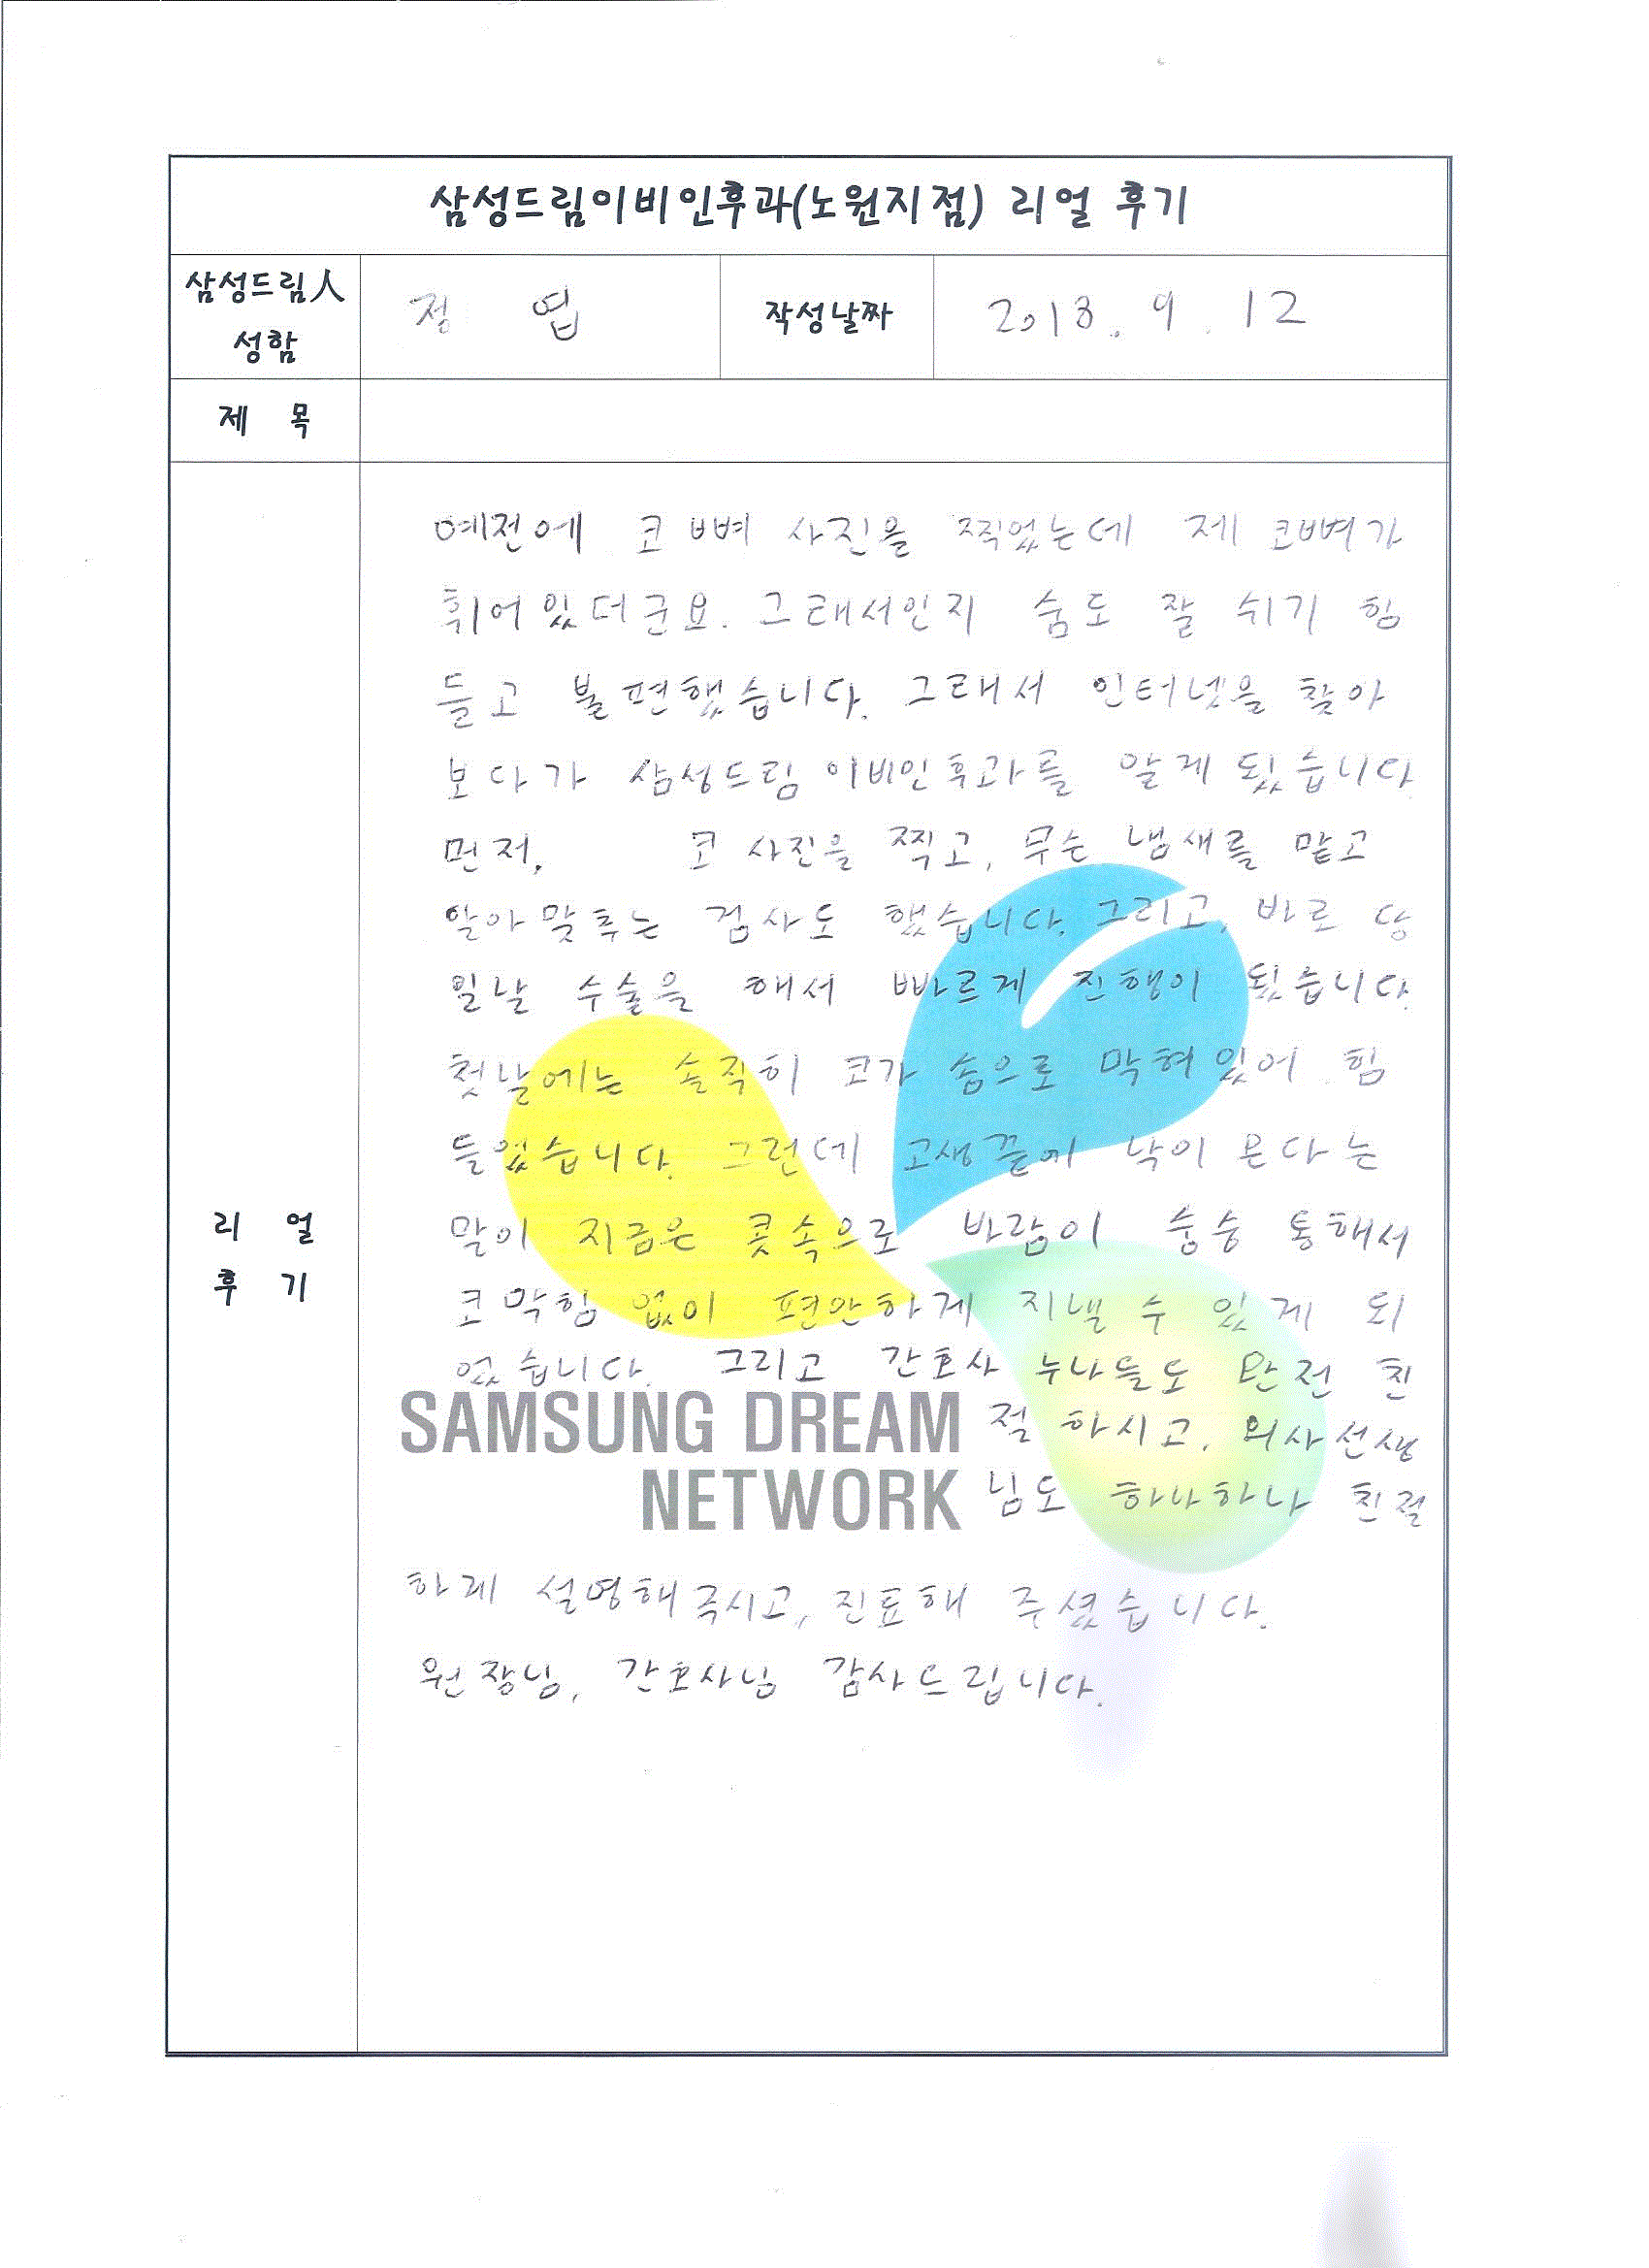 삼성드림이비인후과(노원지점) 리얼 후기
삼성드림人
성함
정 엽
작성날짜
2013. 9. 12
제 목
리 얼
후 기
예전에 코뼈 사진을 찍었는데 제 코뼈가
휘어있더군요. 그래서인지 숨도 잘 쉬기 힘
들고 불편했습니다. 그래서 인터넷을 찾아
보다가 삼성드림 이비인후과를 알게 됬습니다
먼저, 코 사진을 찍고, 무슨 냄새를 맡고
알아맞추는 검사도 했습니다. 그리고, 바로 당
일날 수술을 해서 빠르게 진행이 됬습니다.
첫날에는 솔직히 코가 솜으로 막혀있어 힘
들었습니다. 그런데 고생끝에 낙이 온다는
말이 지금은 콧속으로 바람이 숭숭 통해서
코막힘 없이 편안하게 지낼 수 있게 되
었습니다. 그리고 간호사 누나들도 완전 친
절 하시고, 의사선생
님도 하나하나 친절
하게 설명해주시고, 진료해 주셨습니다.
원장님, 간호사님 감사드립니다.
SAMSUNG DREAM
NETWORK